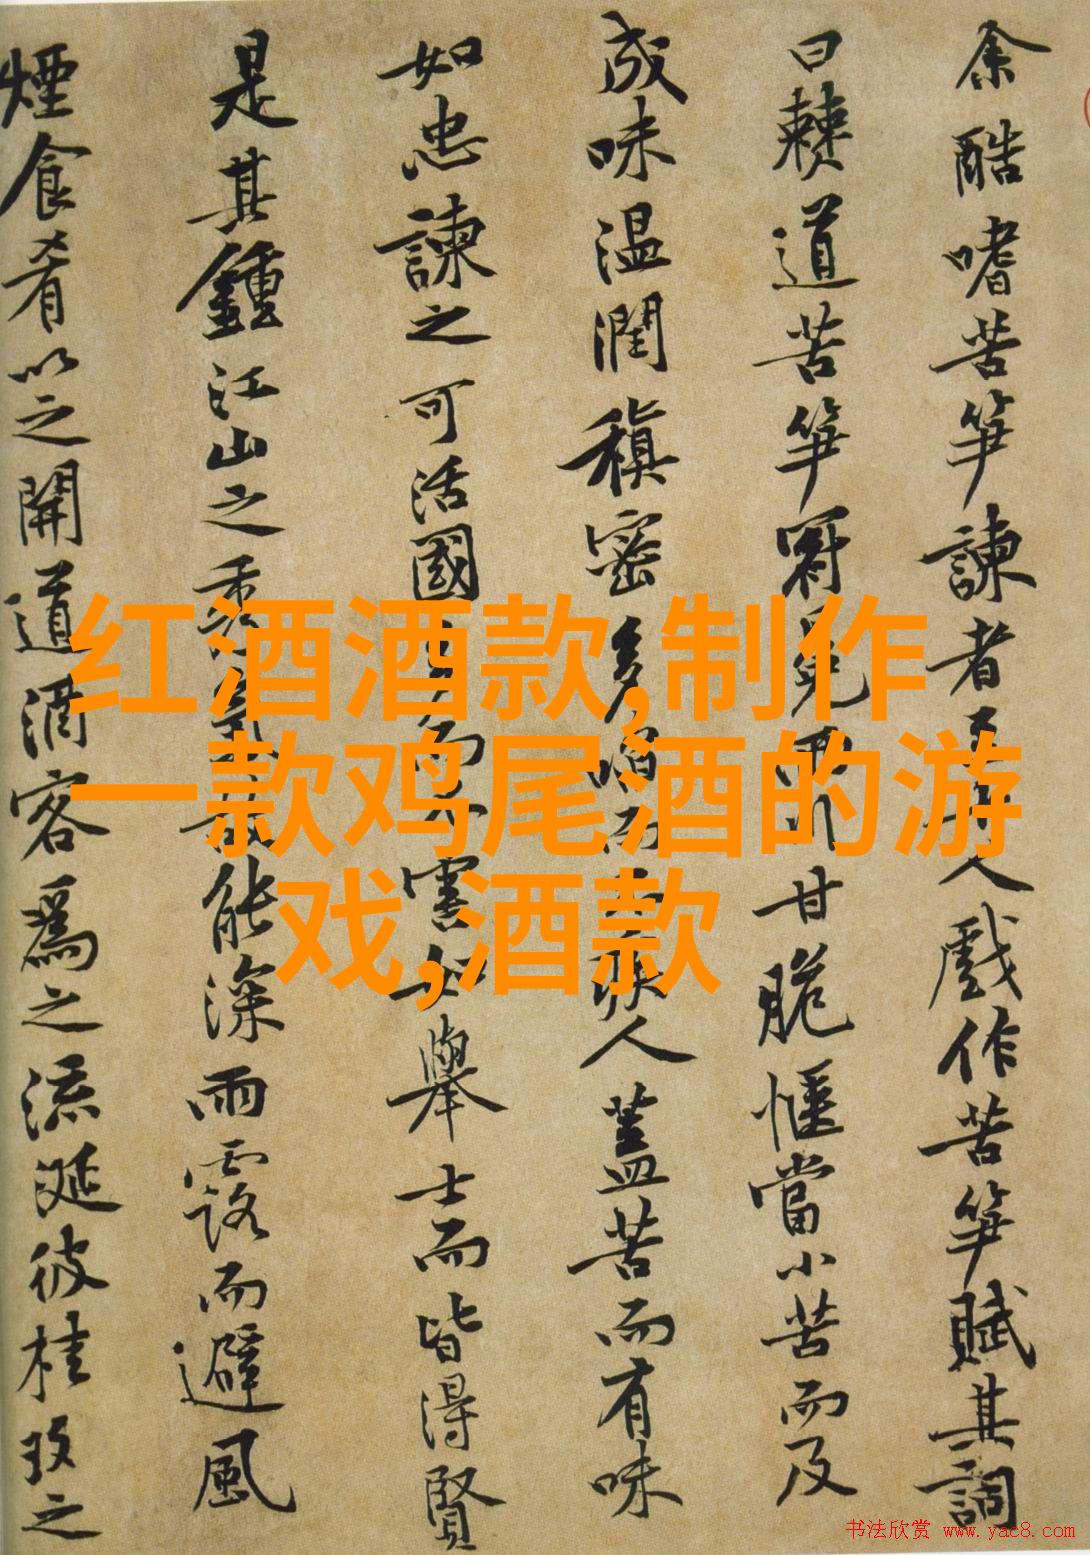 余酷嗜苦笋諫者至十人戲作苦笋賦其詞
曰棘道苦笋冠冕兩川甘脆愜當小苦而及
成味温潤稹密多啗而不疾人蓋苦而有味
如忠諫之可活國多而不害如舉士而皆得賢
是其鍾江山之秀氣故能深雨露而避風
煙食肴以之開道酒客爲之流涎彼桂玫之
红酒酒款,制作
一款鸡尾酒的游
戏,酒款
书法欣赏 www.yac8.com